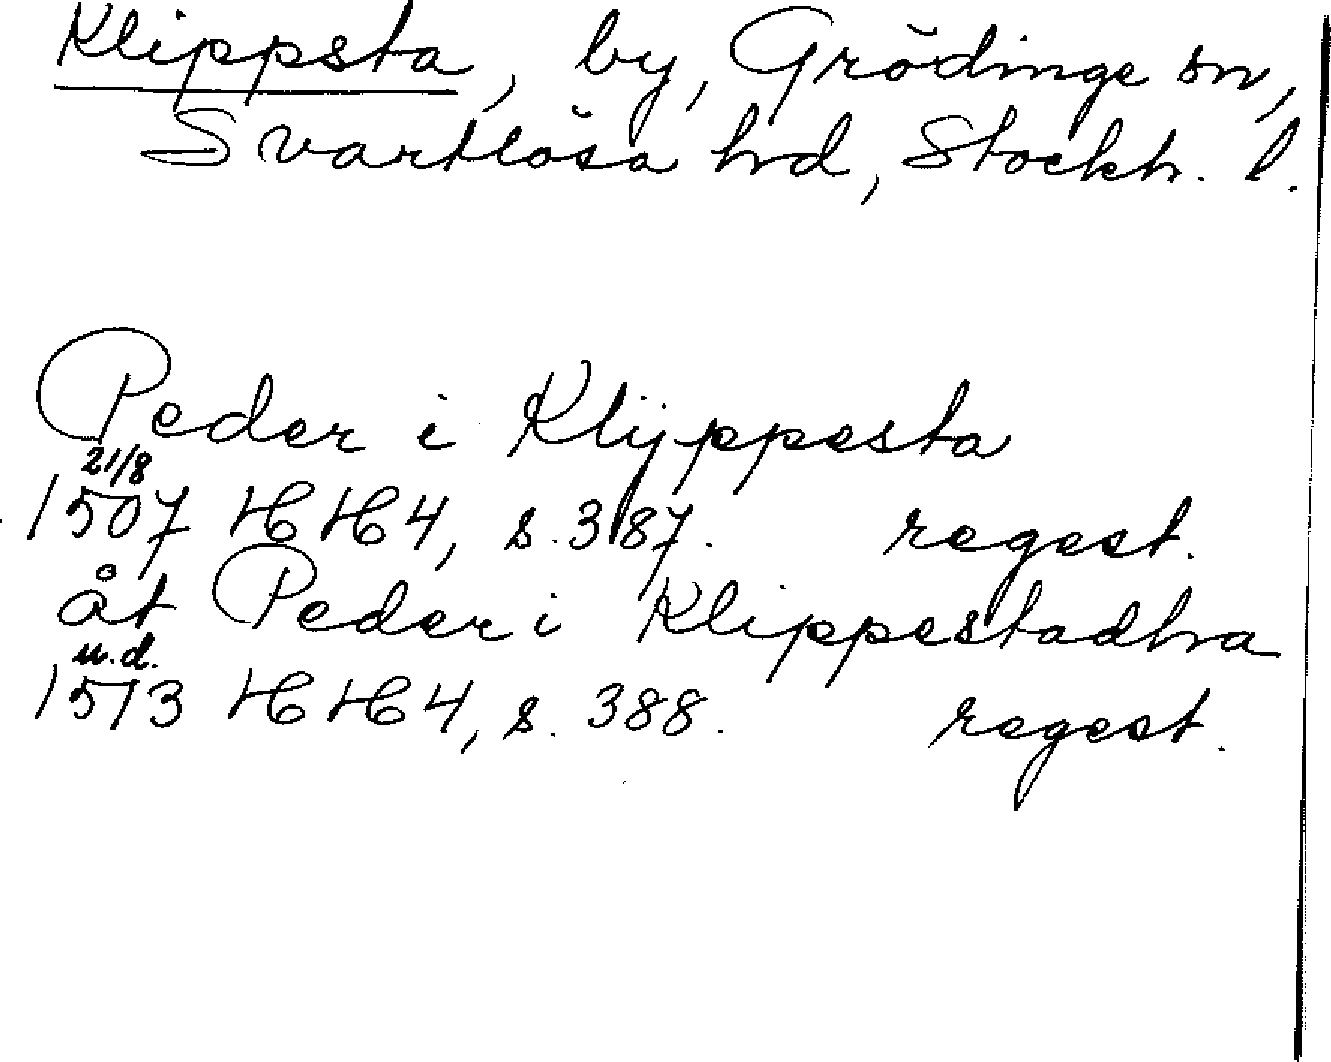 Klippsta, by, Grödinge sn,
Svartlösa hd, Stockh. l.
Peder i Klijppesta
21/8
1507 HH4, s. 387. regest.
åt Peder i Klippestadhra
u.d.
1513 HH4, s. 388. regest.